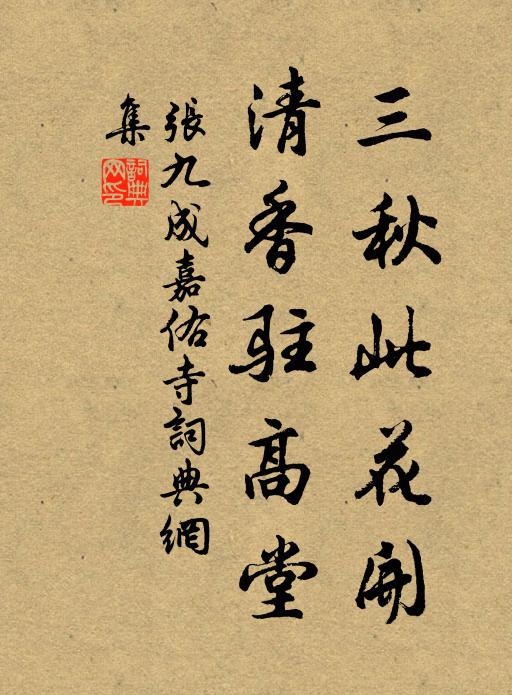 三秋此花開
清香駐高堂
張九成嘉佑寺詞典網
集
詞典
网印